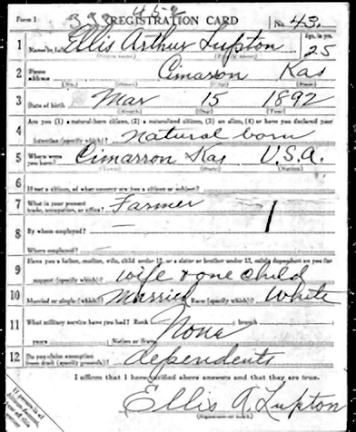 Form 1 REGISTRATION CARD No. 43
1 Name in full Ellis Arthur Lupton Age, in yrs. 25
2 Home address Cimaron Kas
3 Date of birth Mar 15 1892
4 Are you (1) a natural-born citizen, (2) a naturalized citizen, (3) an alien, (4) or have you declared your
intention (specify which)? Natural born
5 Where were you born? Cimarron Kas U.S.A.
6 If not a citizen, of what country are you a citizen or subject?
7 What is your present trade, occupation, or office? Farmer
8 By whom employed? —
Where employed? —
9 Have you a father, mother, wife, child under 12, or a sister or brother under 12, solely dependent on you for
support (specify which)? wife & one child
10 Married or single (which)? Married Race (specify which)? White
11 What military service have you had? Rank branch
years Nation or State None
12 Do you claim exemption from draft (specify grounds)? dependents
I affirm that I have verified above answers and that they are true.
Ellis A. Lupton